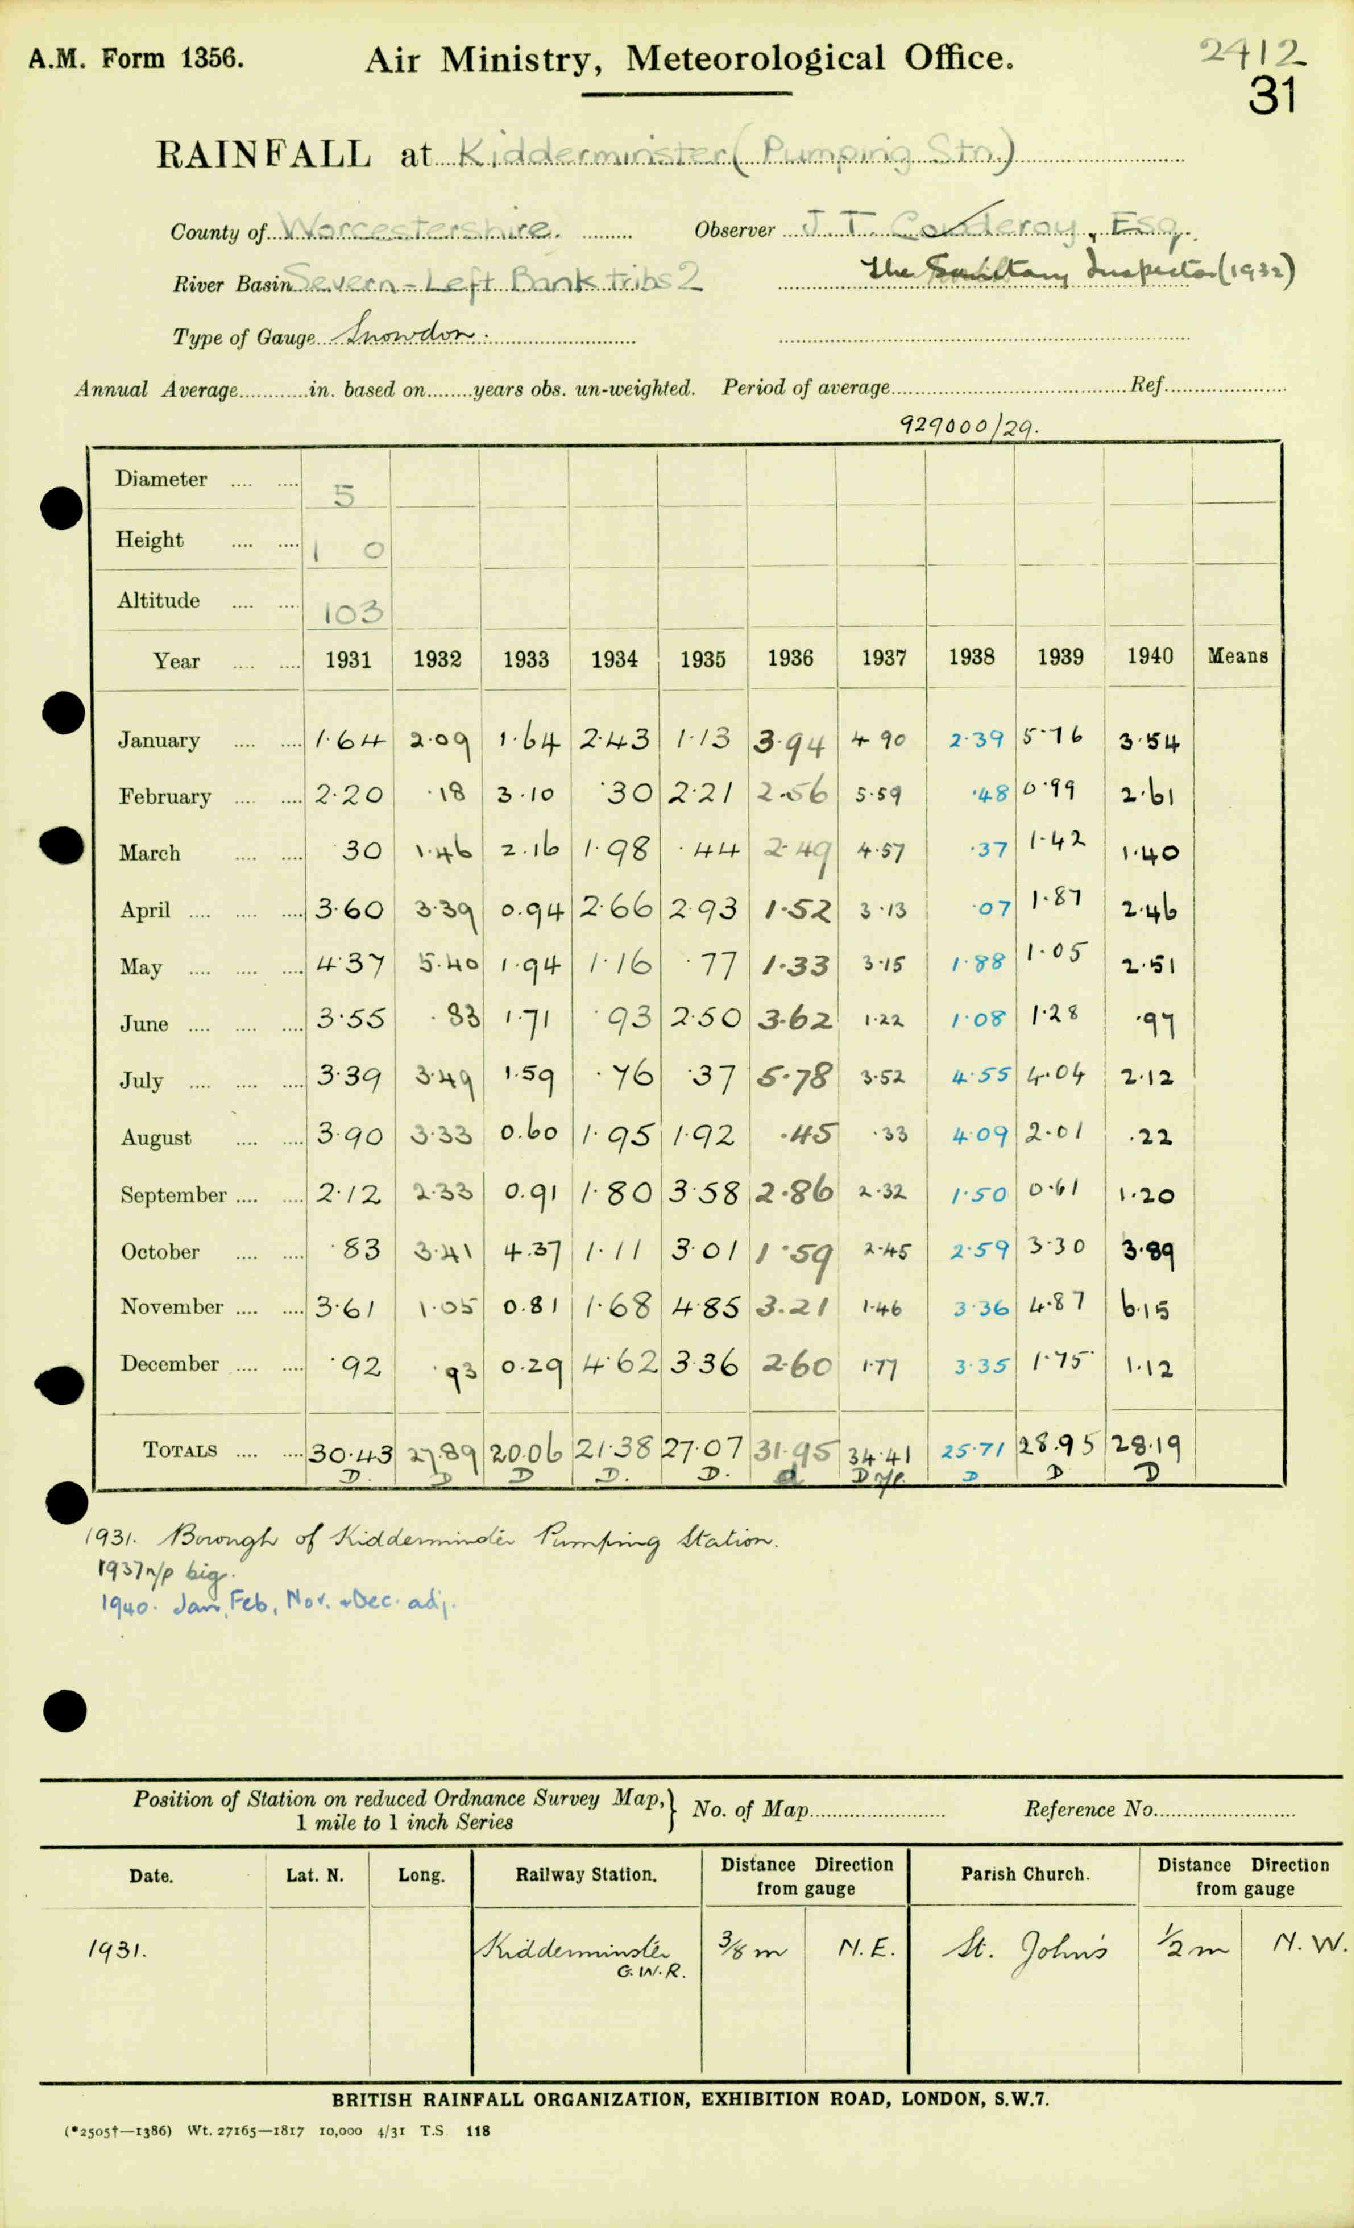 A.M. Form 1356.
Air Ministry, Meteorological Office.
2412
31
RAINFALL at Kidderminster (Pumping Stn.)
County of Worcestershire. Observer J. T. Cowderoy, Esq.
River Basin Severn - Left Bank tribs 2 The Sanitary Inspector (1932)
Type of Gauge Snowdon.
Annual Average in. based on years obs. un-weighted. Period of average Ref.
929000/29.
Diameter 5
Height 1 0
Altitude 103
Year 1931 1932 1933 1934 1935 1936 1937 1938 1939 1940 Means
January 1.64 2.09 1.64 2.43 1.13 3.94 4.90 2.39 5.76 3.54
February 2.20 .18 3.10 .30 2.21 2.56 5.59 .48 0.99 2.61
March 30 1.46 2.16 1.98 .44 2.49 4.57 .37 1.42 1.40
April 3.60 3.39 0.94 2.66 2.93 1.52 3.13 .07 1.87 2.46
May 4.37 5.40 1.94 1.16 .77 1.33 3.15 1.88 1.05 2.51
June 3.55 .83 1.71 .93 2.50 3.62 1.22 1.08 1.28 .97
July 3.39 3.49 1.59 .76 .37 5.78 3.52 4.55 4.04 2.12
August 3.90 3.33 0.60 1.95 1.92 .45 .33 4.09 2.01 .22
September 2.12 2.33 0.91 1.80 3.58 2.86 2.32 1.50 0.61 1.20
October .83 3.41 4.37 1.11 3.01 1.59 2.45 2.59 3.30 3.89
November 3.61 1.05 0.81 1.68 4.85 3.21 1.46 3.36 4.87 6.15
December .92 .93 0.29 4.62 3.36 2.60 1.77 3.35 1.75 1.12
TOTALS 30.43 27.89 20.06 21.38 27.07 31.95 34.41 25.71 28.95 28.19
D. D D D. D. d D r/p. D D D
1931. Borough of Kidderminster Pumping Station.
1937 r/p big.
1940. Jan, Feb, Nov. + Dec. adj.
Position of Station on reduced Ordnance Survey Map, 1 mile to 1 inch Series } No. of Map Reference No.
Date. Lat. N. Long. Railway Station. Distance Direction from gauge Parish Church. Distance Direction from gauge
1931. Kidderminster G.W.R. 3/8 m N.E. St. John's 1/2 m N.W.
BRITISH RAINFALL ORGANIZATION, EXHIBITION ROAD, LONDON, S.W.7.
(*2505†—1386) Wt. 27165—1817 10,000 4/31 T.S 118